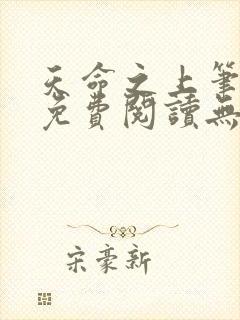 天命之上筆
免費閱讀無
宋豪新